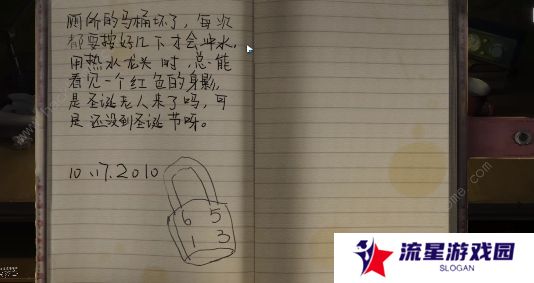 厕所的马桶坏了，每次
都要按好几下才会冲水，
用热水龙头时，总能
看见一个红色的身影，
是圣诞老人来了吗，可
是还没到圣诞节呀。
10.17.2010
6 5
1 3
流星游戏园
SLOGAN